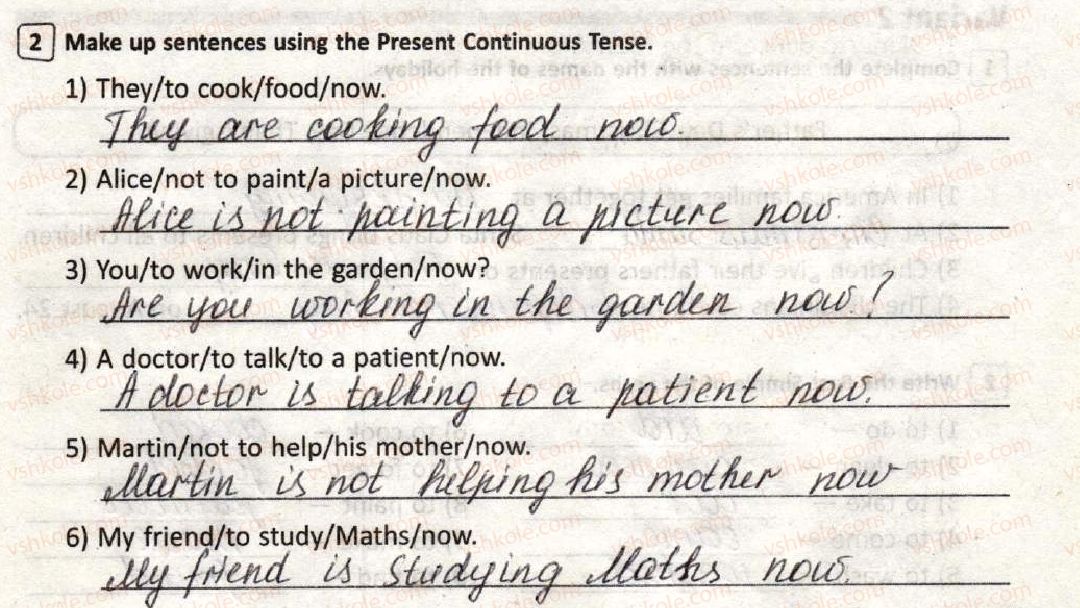 2 Make up sentences using the Present Continuous Tense.
1) They/to cook/food/now.
They are cooking food now.
2) Alice/not to paint/a picture/now.
Alice is not painting a picture now.
3) You/to work/in the garden/now?
Are you working in the garden now?
4) A doctor/to talk/to a patient/now.
A doctor is talking to a patient now.
5) Martin/not to help/his mother/now.
Martin is not helping his mother now
6) My friend/to study/Maths/now.
My friend is studying Maths now.